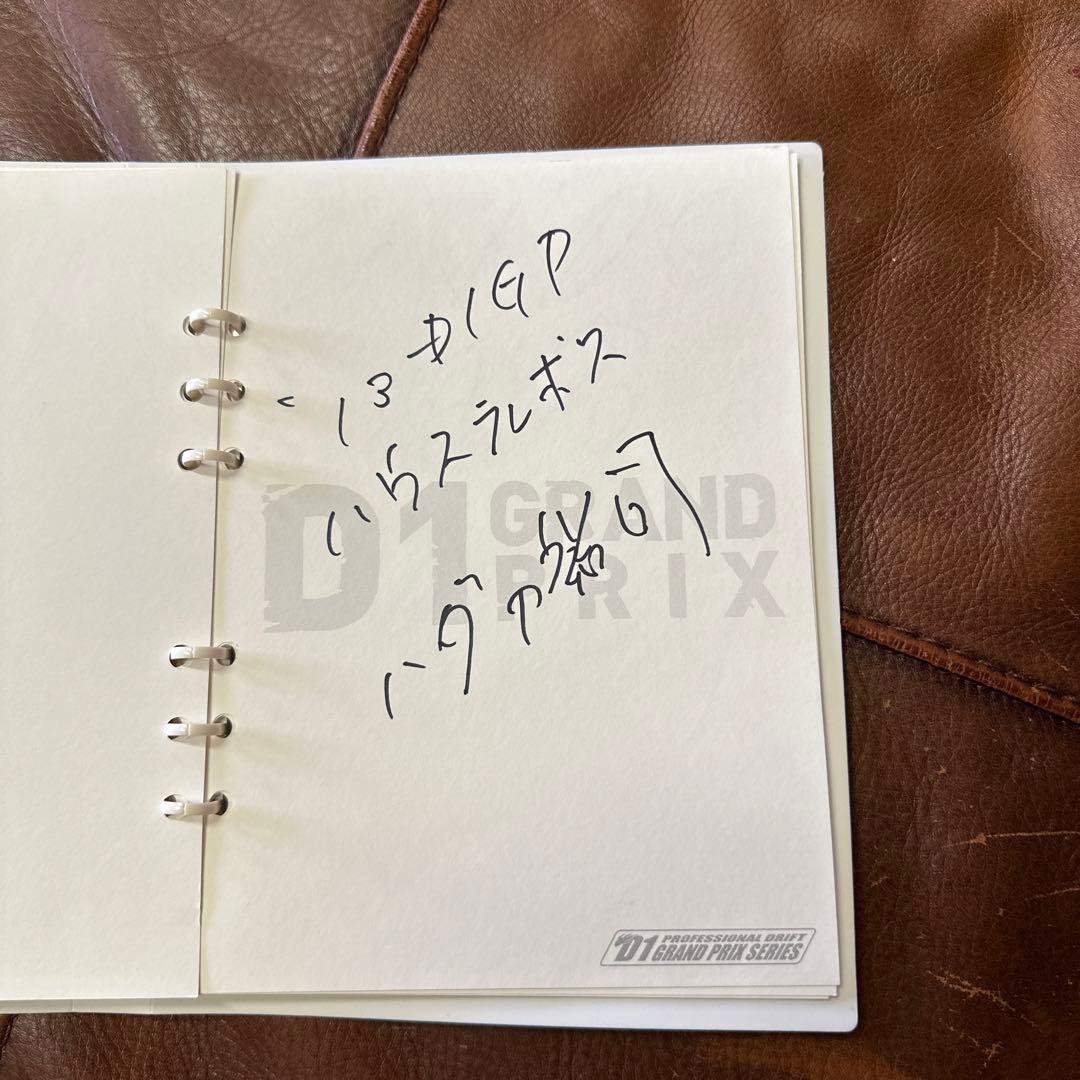 '13 D1GP
ハウステンボス
D1 GRAND PRIX
D1 PROFESSIONAL DRIFT
GRAND PRIX SERIES